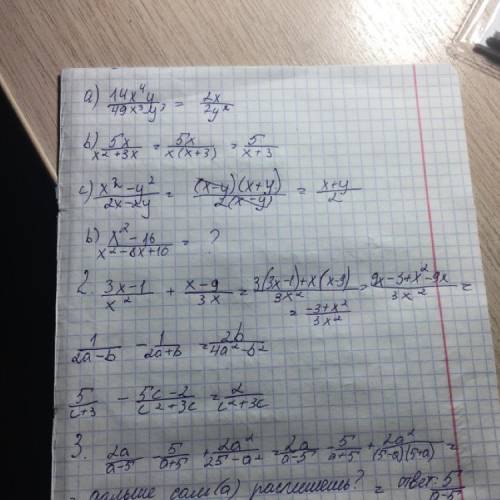 a) 14x⁴y / 49x³y³ = 2x / 7y²
b) 5x / x²+3x = 5x / x(x+3) = 5 / x+3
c) x²-y² / 2x-2y = (x-y)(x+y) / 2(x-y) = x+y / 2
b) x²-16 / x²-8x+10 = ?
2. 3x-1 / x² + x-9 / 3x = 3(3x-1)+x(x-9) / 3x² = 9x-3+x²-9x / 3x² =
= -3+x² / 3x²
1 / 2a-b - 1 / 2a+b = 2b / 4a²-b²
5 / c+3 - 5c-2 / c²+3c = 2 / c²+3c
3. 2a / a-5 - 5 / a+5 + 2a² / 25-a² = 2a / a-5 - 5 / a+5 + 2a² / (5-a)(5+a) =
= дальше сам(а) распишешь? = ответ: 5 / a-5